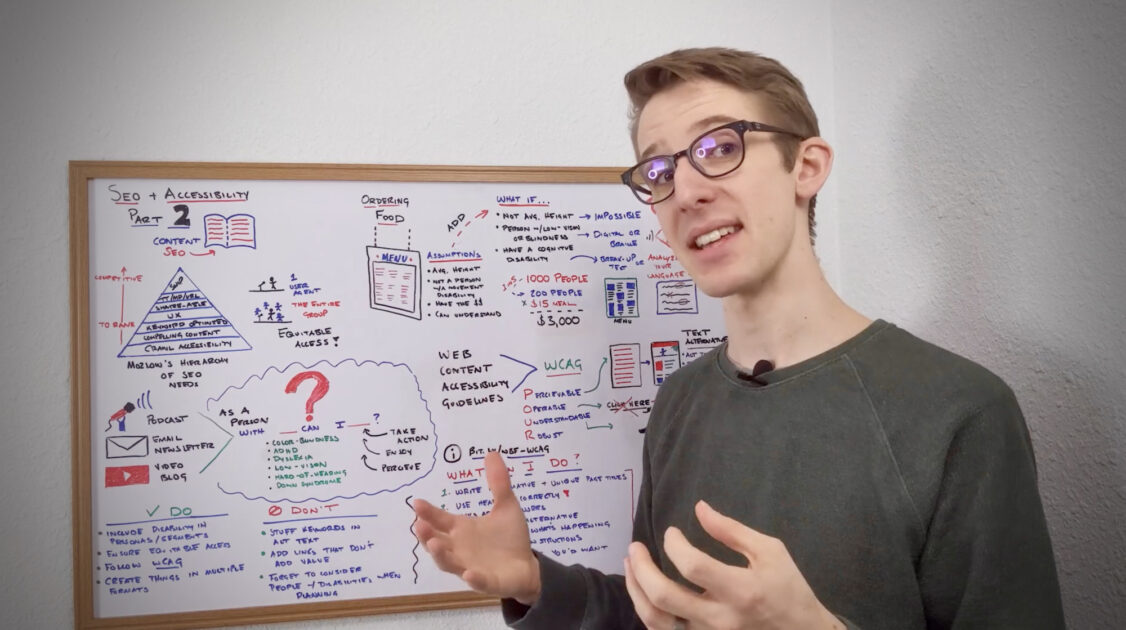 SEO + ACCESSIBILITY
PART 2
CONTENT
SEO
COMPETITIVE
TO RANK
SHARE-ABLE
UX
KEYWORD OPTIMIZED
COMPELLING CONTENT
CRAWL ACCESSIBILITY
MOZLOW'S HIERARCHY
OF SEO
NEEDS
1
USER
AGENT
THE ENTIRE
GROUP
EQUITABLE
ACCESS!
ORDERING
FOOD
MENU
ADD
ASSUMPTIONS
• AVG. HEIGHT
• NOT A PERSON
W/A MOVEMENT
DISABILITY
• HAVE THE $$
• CAN UNDERSTAND
WHAT IF...
• NOT AVG. HEIGHT → IMPOSSIBLE
• PERSON W/LOW-VISION
OR BLINDNESS → DIGITAL OR
BRAILLE
• HAVE A COGNITIVE
DISABILITY
BREAK-UP
TEXT
OR
ANALYZE
YOUR
LANGUAGE
1000 PEOPLE
200 PEOPLE
X $15 MEAL
$3,000
MENU
PODCAST
EMAIL
NEWSLETTER
VIDEO
BLOG
?
AS A
PERSON
WITH ____ CAN I ____?
• COLOR-BLINDNESS
• ADHD
• DYSLEXIA
• LOW-VISION
• HARD-OF-HEARING
• DOWN SYNDROME
TAKE
ACTION
ENJOY
PERCEIVE
WEB
CONTENT
ACCESSIBILITY
GUIDELINES
WCAG
PERCEIVABLE
OPERABLE
UNDERSTANDABLE
ROBUST
TEXT
CLICK HERE
i BIT.LY/WBF-WCAG
WHAT I DO?
1. WRITE + UNIQUE PAGE TITLES
2. USE CORRECTLY!
WHAT'S HAPPENING
YOU'D WANT
✓ DO
• INCLUDE DISABILITY IN
PERSONAS/SEGMENTS
• ENSURE EQUITABLE ACCESS
• FOLLOW WCAG
• CREATE THINGS IN MULTIPLE
FORMATS
DON'T
• STUFF KEYWORDS IN
ALT TEXT
• ADD LINKS THAT DON'T
ADD VALUE
• FORGET TO CONSIDER
PEOPLE W/DISABILITIES WHEN
PLANNING